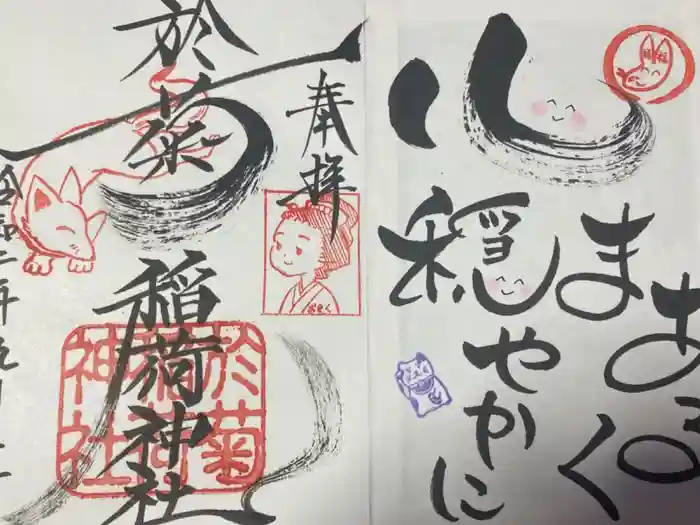 心
穏やかに
まあるく
奉拝
おきく
於菊稲荷神社
於菊
稲荷
神社
令和二年九月